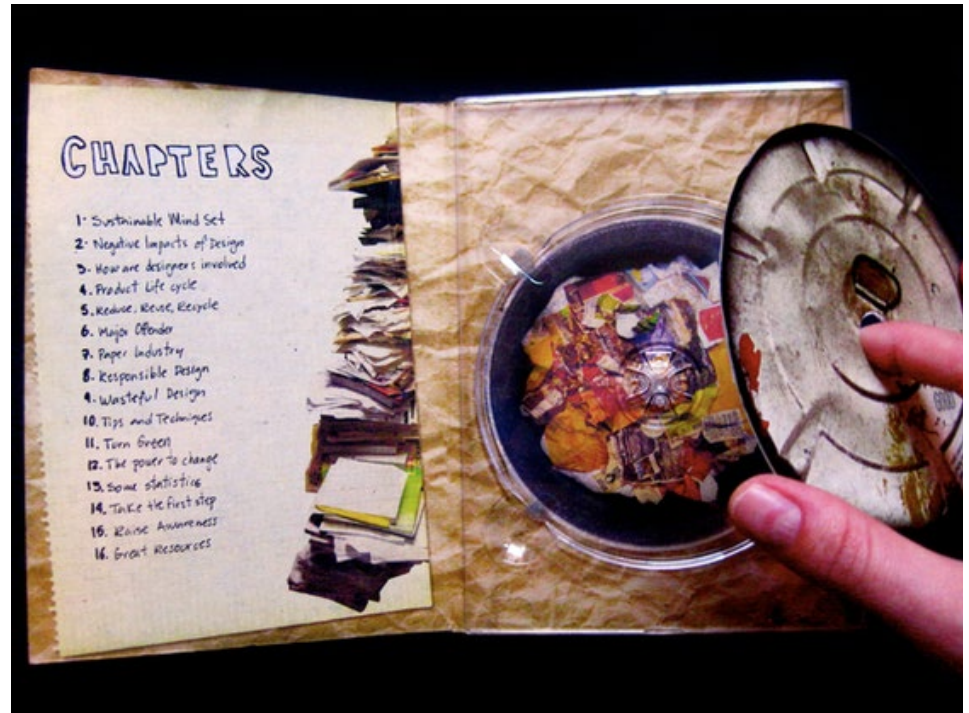 CHAPTERS
1. Sustainable Mind Set
2. Negative Impacts of Design
3. How are designers involved
4. Product Life cycle
5. Reduce, Reuse, Recycle
6. Major Offender
7. Paper Industry
8. Responsible Design
9. Wasteful Design
10. Tips and Techniques
11. Turn Green
12. The power to change
13. Some statistics
14. Take the first step
15. Raise Awareness
16. Great Resources